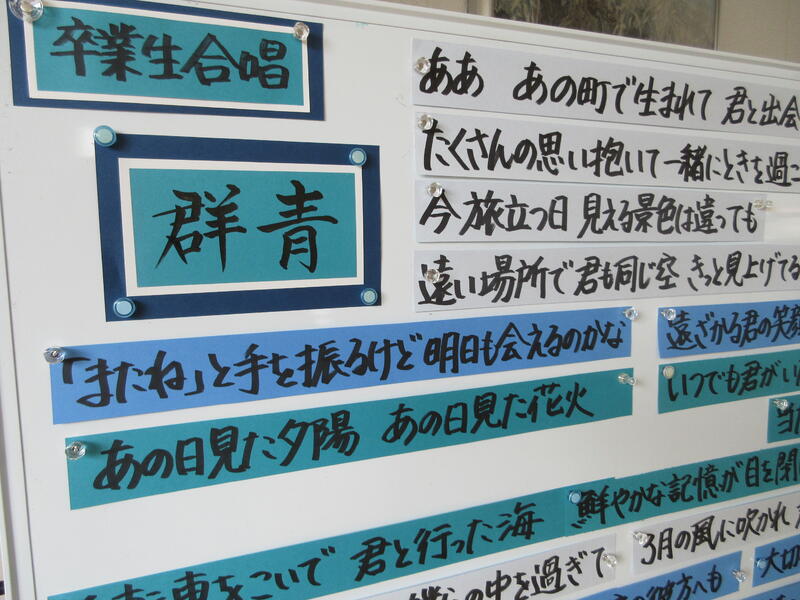 卒業生合唱
群青
ああ あの町で生まれて 君と出会
たくさんの思い抱いて一緒にときを過
今旅立つ日 見える景色は違っても
遠い場所で君も同じ空 きっと見上げてる
「またね」と手を振るけど 明日も会えるのかな
遠ざかる君の笑顔
あの日見た夕陽 あの日見た花火
いつでも君がい
鮮やかな記憶が目を閉
転車をこいで 君と行った海
3月の風に吹かれ
の中を過ぎて
大切
の彼方へも